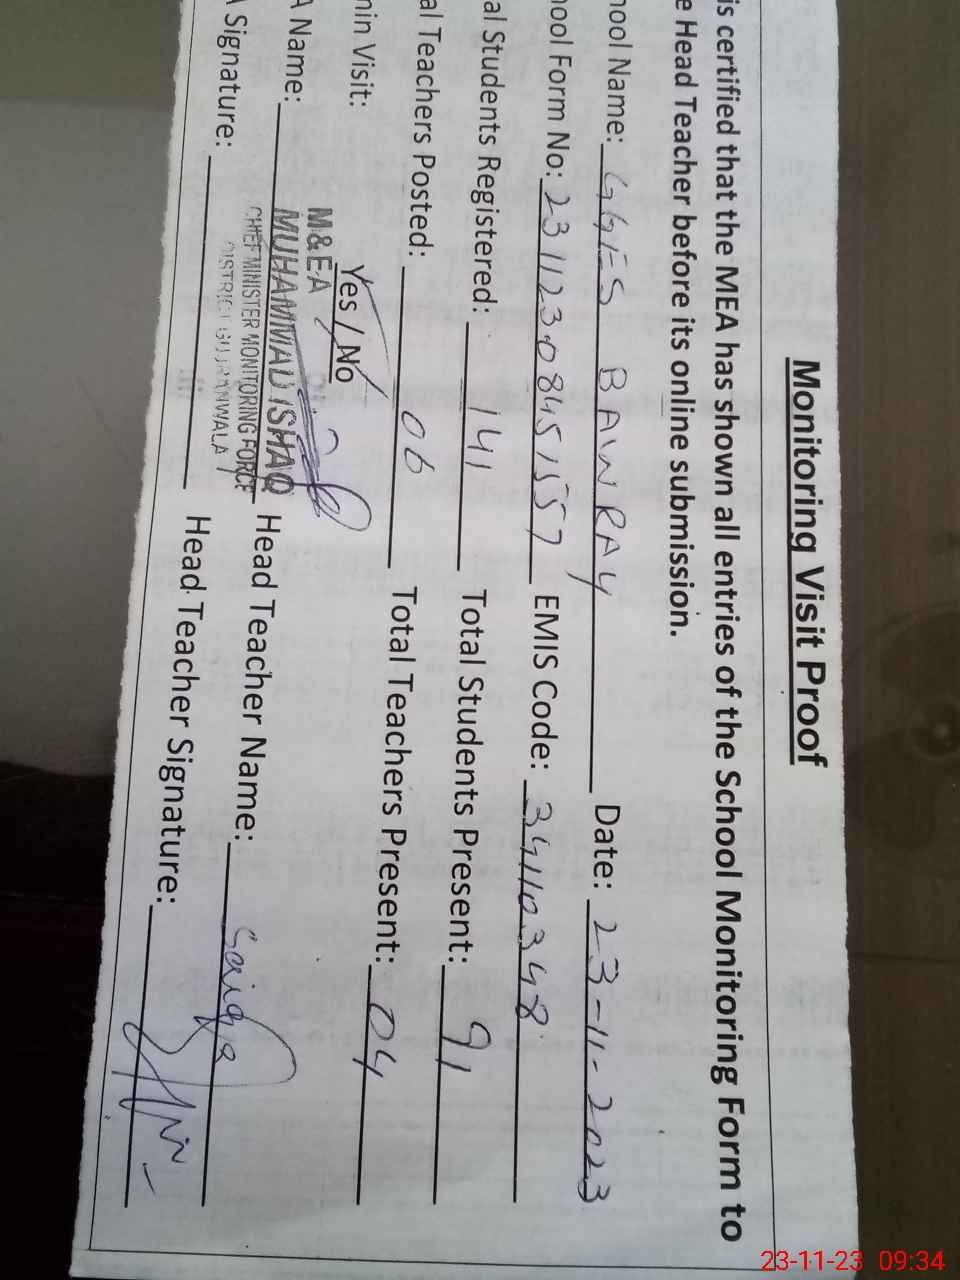 Monitoring Visit Proof
is certified that the MEA has shown all entries of the School Monitoring Form to
e Head Teacher before its online submission.
hool Name: GGES BAWRAY Date: 23-11-2023
hool Form No: 2311230845157 EMIS Code: 34110348
al Students Registered: 141 Total Students Present: 91
al Teachers Posted: 06 Total Teachers Present: 04
min Visit: Yes / No
M&EA
A Name: MUHAMMAD ISHAQ Head Teacher Name: Saiqa
CHIEF MINISTER MONITORING FORCE
DISTRICT GUJRANWALA
A Signature: Head Teacher Signature:
23-11-23 09:34